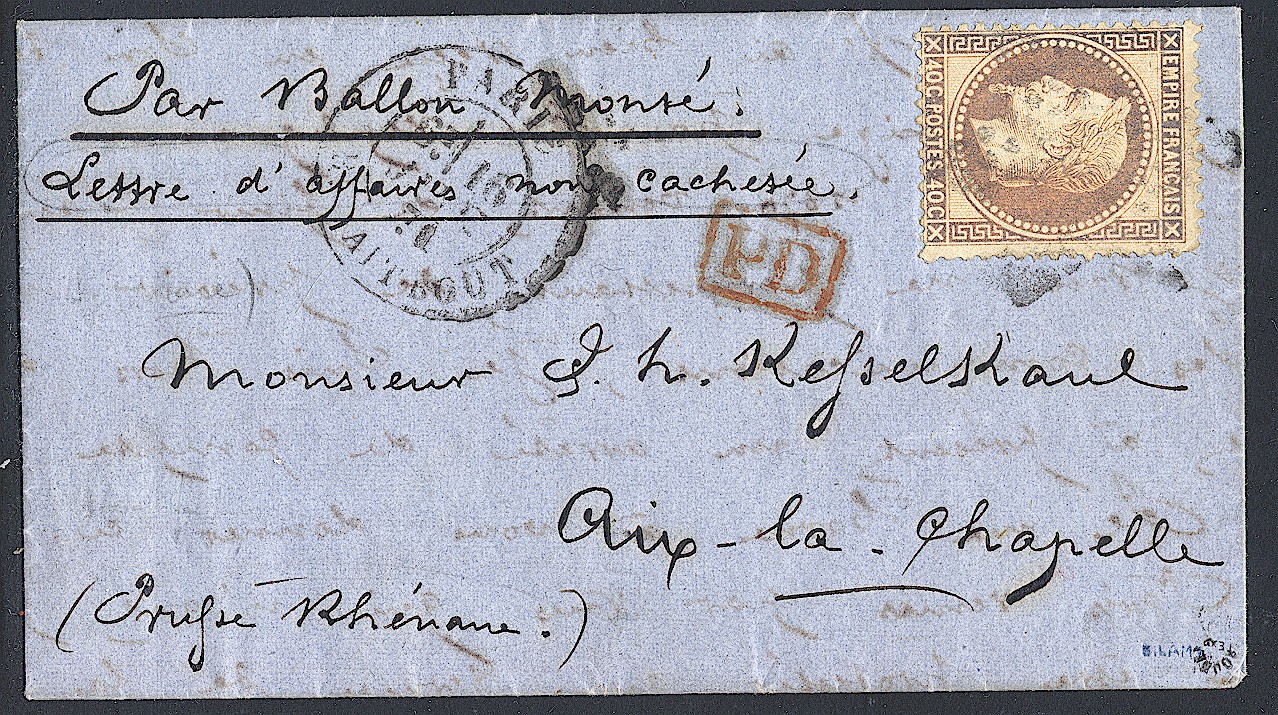 Par Ballon Monté.
Lettre d'affaires non cachetée.
PARIS
EMPIRE FRANÇAIS
40C POSTES 40C
PD
Monsieur J. H. Kesselkaul
Aix-la-Chapelle
(Prusse Rhénane.)